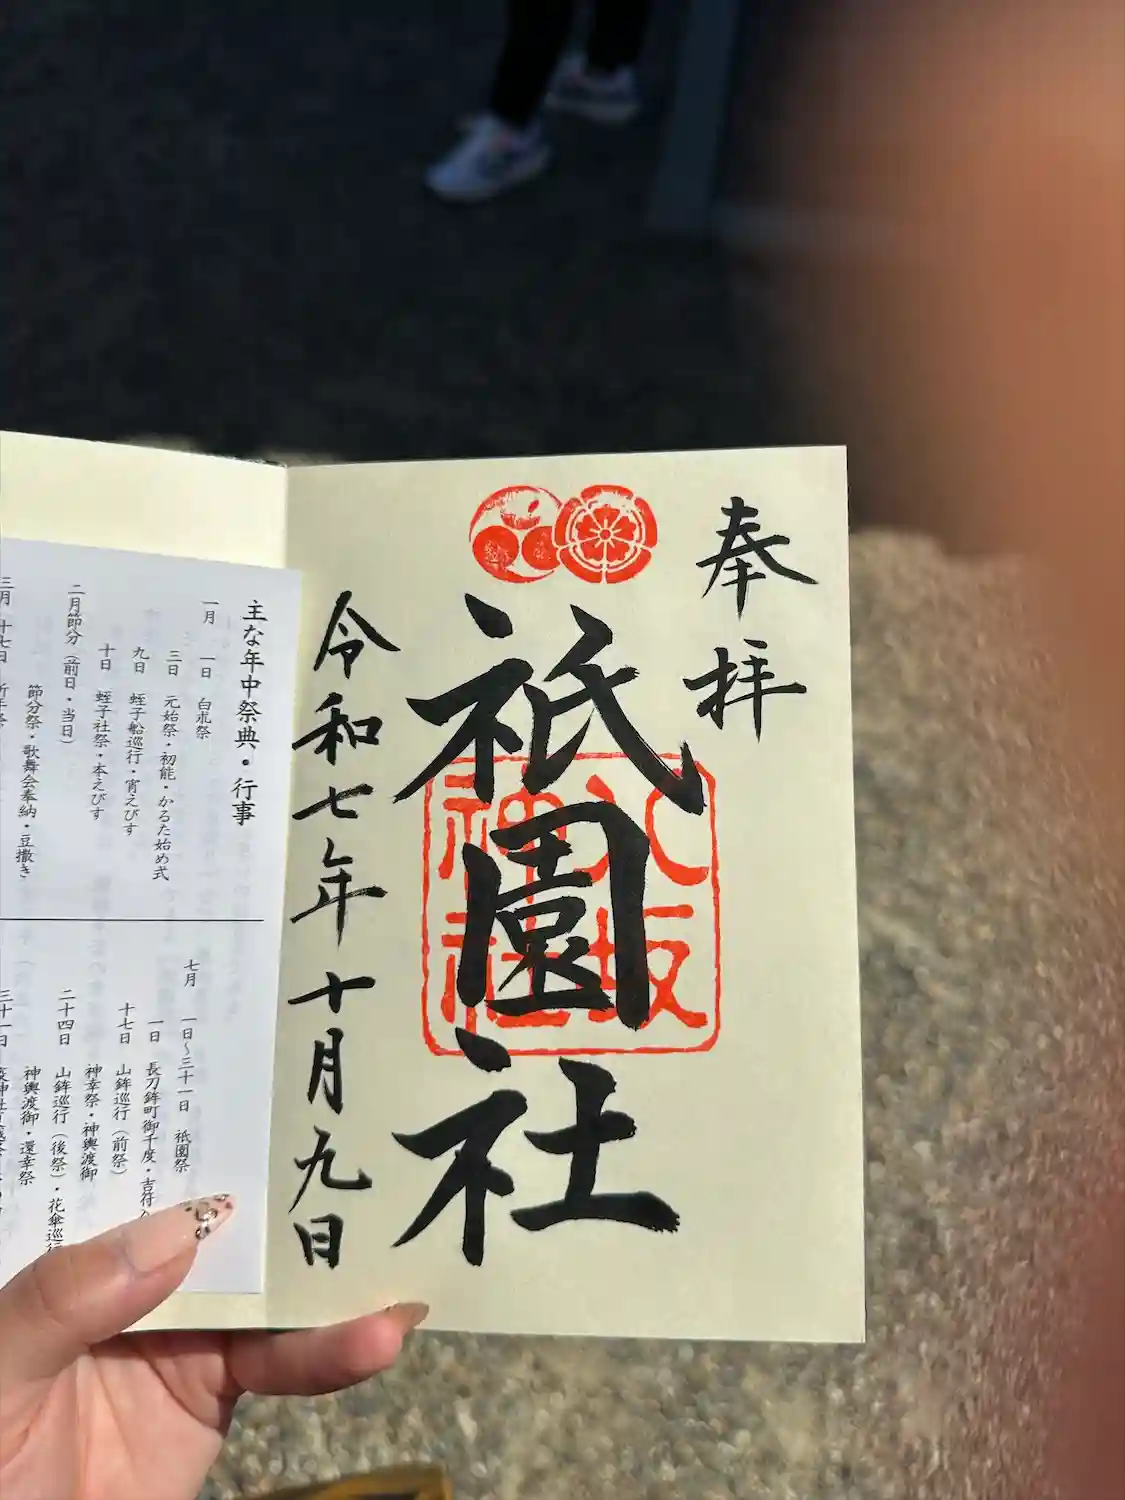 奉拝
祇園社
八坂
神社
令和七年十月九日
主な年中祭典・行事
一月 一日 白朮祭
三日 元始祭・初能・かるた始め式
九日 蛭子船巡行・宵えびす
十日 蛭子社祭・本えびす
二月節分(前日・当日)
節分祭・歌舞会奉納・豆撒き
三月 十七日 祈年祭
七月 一日~三十一日 祇園祭
一日 長刀鉾町御千度・吉符
十七日 山鉾巡行(前祭)
神幸祭・神輿渡御
二十四日 山鉾巡行(後祭)・花傘巡行
神輿渡御・還幸祭
三十一日